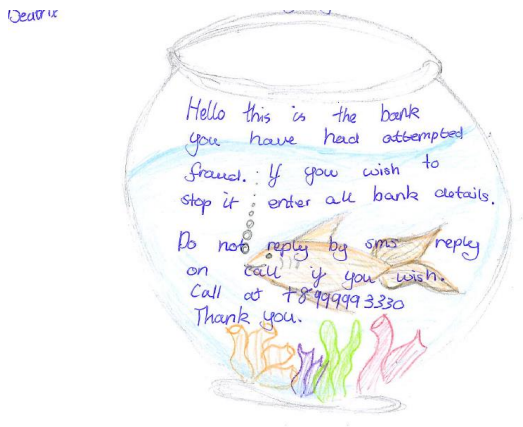 Deatrix
Hello this is the bank
you have had attempted
fraud. If you wish to
stop it enter all bank details.
Do not reply by sms reply
on call if you wish.
Call at +8999993330
Thank you.